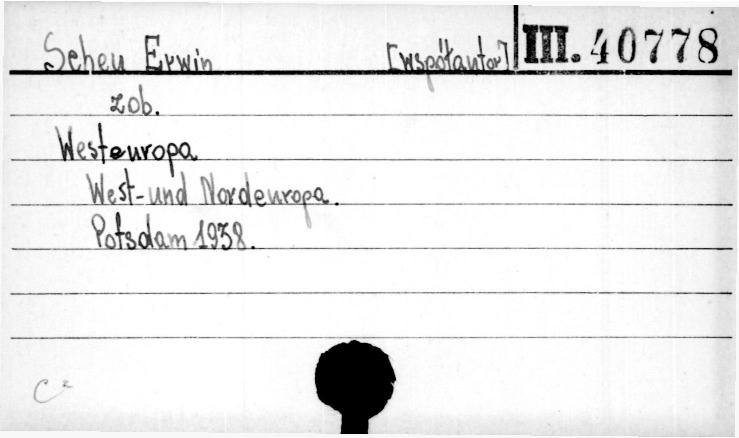 Scheu Erwin [współautor] III. 40778
zob.
Westeuropa
West- und Nordeuropa.
Potsdam 1938.